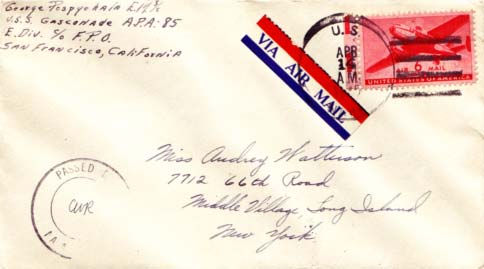 George Pospychala E M 3/c
U.S.S. Gasconade A.P.A.-85
E. Div. c/o F.P.O.
San Francisco, California
VIA AIR MAIL
U.S.
APR
14
A.M.
6¢
AIR MAIL
UNITED STATES OF AMERICA
Miss Audrey Watterson
7712 66th Road
Middle Village, Long Island
New York
PASSED
CWR